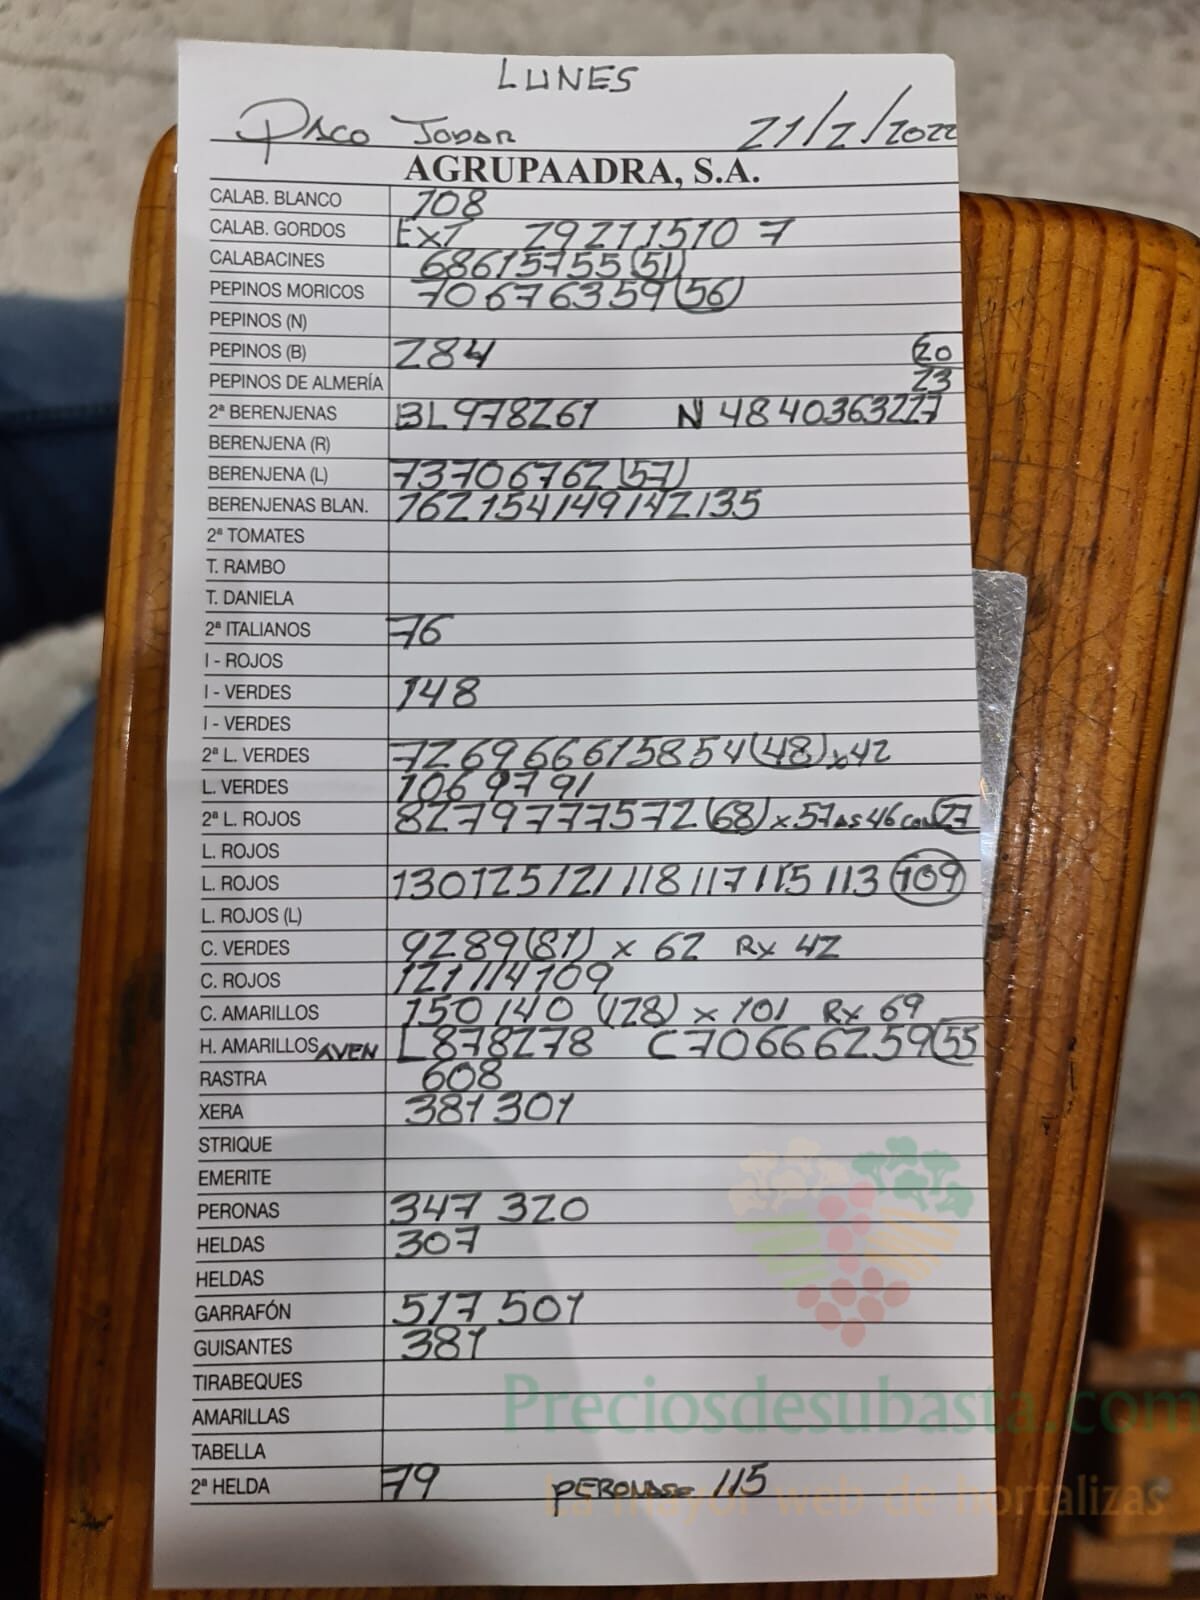 LUNES
Paco Jodar 21/2/2022
AGRUPAADRA, S.A.
CALAB. BLANCO 108
CALAB. GORDOS EXT 29 21 15 10 7
CALABACINES 68 61 57 55 (51)
PEPINOS MORICOS 70 67 63 59 (56)
PEPINOS (N)
PEPINOS (B) 284 20
PEPINOS DE ALMERÍA 23
2ª BERENJENAS BL 97 82 61 N 48 40 36 32 27
BERENJENA (R)
BERENJENA (L) 73 70 67 62 (57)
BERENJENAS BLAN. 162 154 149 142 135
2ª TOMATES
T. RAMBO
T. DANIELA
2ª ITALIANOS 76
I - ROJOS
I - VERDES 148
I - VERDES
2ª L. VERDES 72 69 66 61 58 54 (48) x 42
L. VERDES 106 97 91
2ª L. ROJOS 82 79 77 75 72 (68) x 57 46 27
L. ROJOS
L. ROJOS 130 125 121 118 117 115 113 109
L. ROJOS (L)
C. VERDES 92 89 (81) x 62 Rx 42
C. ROJOS 121 114 109
C. AMARILLOS 150 140 (128) x 101 Rx 69
H. AMARILLOS AVEN L 87 82 78 C 70 66 62 59 55
RASTRA 608
XERA 381 301
STRIQUE
EMERITE
PERONAS 347 320
HELDAS 307
HELDAS
GARRAFÓN 517 501
GUISANTES 381
TIRABEQUES
Preciosdesubasta.com
AMARILLAS
TABELLA
2ª HELDA 79 115
La mayor web de hortalizas